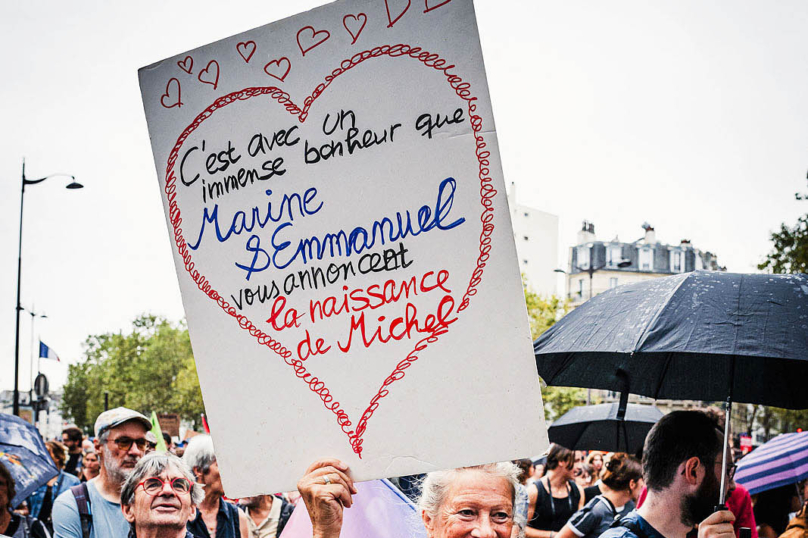 C'est avec un
immense bonheur que
Marine
& Emmanuel
vous annoncent
la naissance
de Michel